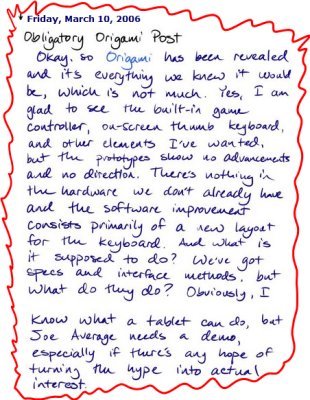 Friday, March 10, 2006
Obligatory Origami Post
Okay, so Origami has been revealed
and it's everything we knew it would
be, which is not much. Yes, I am
glad to see the built-in game
controller, on-screen thumb keyboard,
and other elements I've wanted,
but the prototypes show no advancements
and no direction. There's nothing in
the hardware we don't already have
and the software improvement
consists primarily of a new layout
for the keyboard. And what is
it supposed to do? We've got
specs and interface methods, but
what do they do? Obviously, I
know what a tablet can do, but
Joe Average needs a demo,
especially if there's any hope of
turning the hype into actual
interest.